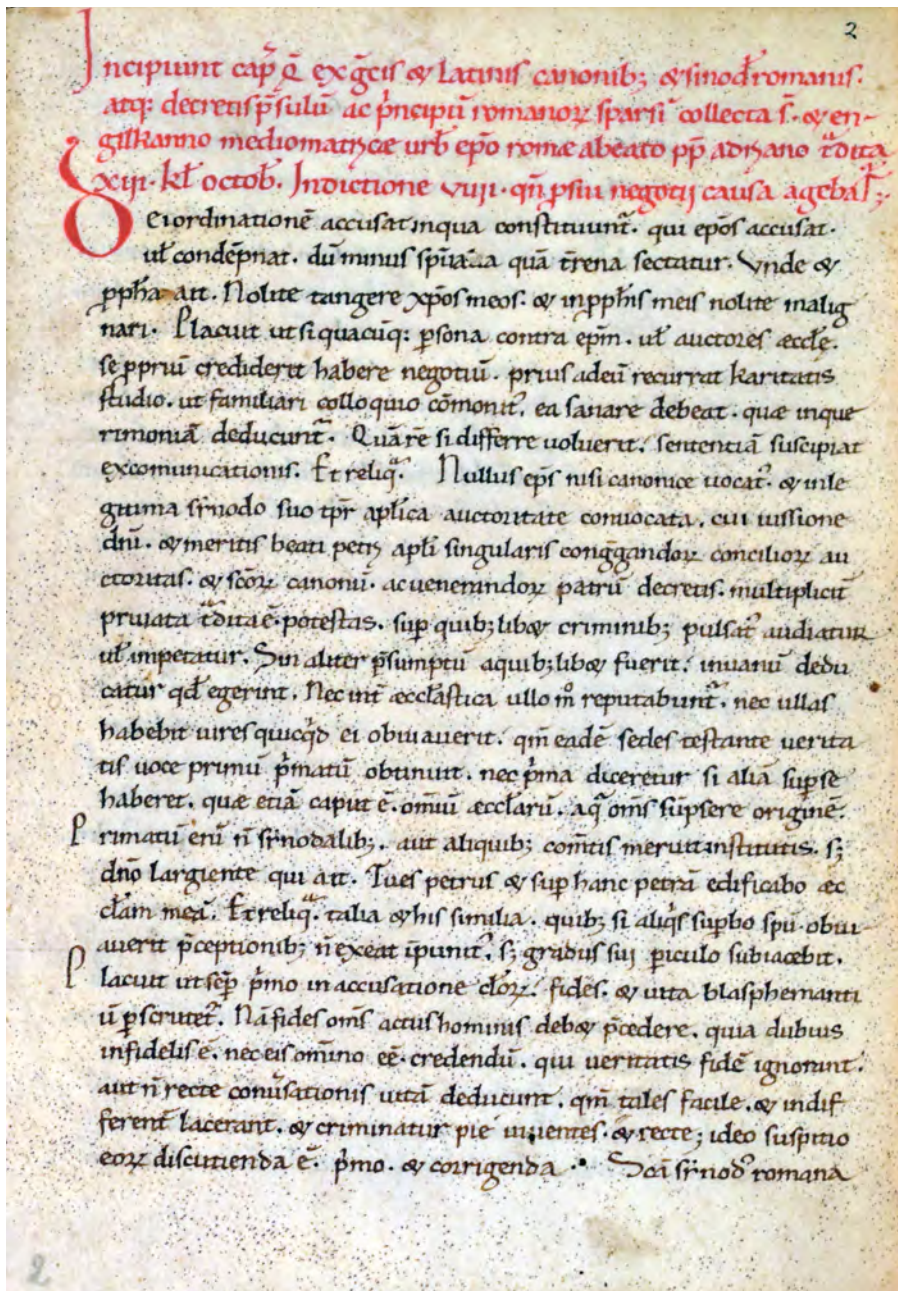 2
Incipiunt cap̄ q̄ ex g̃cis & latinis canonib; & sinod̄ romanis.
atq: decretis p̄sulū ac p̃ncipū romanoꝝ sparsī collecta s̄. & en-
gilRanno mediomatricæ urb̄ ep̄o romæ a beato pp̄ adriano t̃dita
xiii. kl̄ octob̄. Indictione viiii. qn̄ p̱ sui negotij causa agebat̃;
Dei ordinationē accusat inqua constituunt̃. qui ep̄os accusat.
ul̄ condēpnat. dū minus sp̄italia quā t̄rena sectatur. Vnde &
ꝓph̄a ait. Nolite tangere xp̄os meos. & in ꝓph̄is meis nolite malig
nari. Placuit ut si quacūq: p̱sona contra ep̄m. ul̄ auctores æccl̄e.
se ꝓpriū crediderit habere negotiū. prius ad eū recurrat karitatis
studio. ut familiari colloquio cōmonit᷒. ea sanare debeat. quæ in que
rimoniā deducunt̃. Quā rē si differre uoluerit. sententiā suscipiat
excomunicationis. Et reliq̃. Nullus ep̄s nisi canonice uocat᷒. & in le
gitima sinodo suo tp̄r apl̄ica auctoritate conuocata. cui iussione
dn̄i. & meritis beati petri apl̄i singularis cong̃gandoꝝ concilioꝝ au
ctoritas. & sc̄oꝝ canonū. ac uenerandoꝝ patrū decretis. multiplicit̄
priuata t̃dita ē. potestas. sup̱ quib;lib& criminib; pulsat᷒ audiatur
ul̄ impetatur. Sin aliter p̄sumptū a quib;lib& fuerit. in uanū dedu
catur qd̄ egerint. Nec int̄ æccl̄astica ullo m̊ reputabunt̃. nec ullas
habebit uires quicq̇d ei obuiauerit. qm̄ eadē sedes testante uerita
tis uoce primū p̃matū obtinuit. nec p̃ma diceretur si aliā sup̱ se
haberet. quæ etiā caput ē. omiū æccl̄arū. a q̃ om̄s sūpsere originē.
Primatū enī n̄ sinodalib;. aut aliquib; com̄tis meruit institutis. s;
dn̄o largiente qui ait. Tu es petrus & sup̱ hanc petrā edificabo æc
cl̄am meā. Et reliq̃. talia & his similia. quib; si aliq̇s sup̱bo sp̄u obui
auerit p̄ceptionib; n̄ exeat īpunit᷒. s; gradus sui p̱iculo subiacebit.
Placuit ut sēp̱ p̃mo in accusatione cl̄oꝝ. fides. & uita blasphemanti
ū p̱scrutet̃. Nā fides om̄s actus hominis deb& p̄cedere. quia dubius
infidelis ē. nec eis omīno eē. credendū. qui ueritatis fidē ignorant.
aut n̄ recte conu̱sationis uitā deducunt. qm̄ tales facile. & indif
ferent̄ lacerant. & criminatur pie uiuentes. & recte; ideo suspitio
eoꝝ discutienda ē. p̃mo. & corrigenda. Scā sinod᷒ romana
2